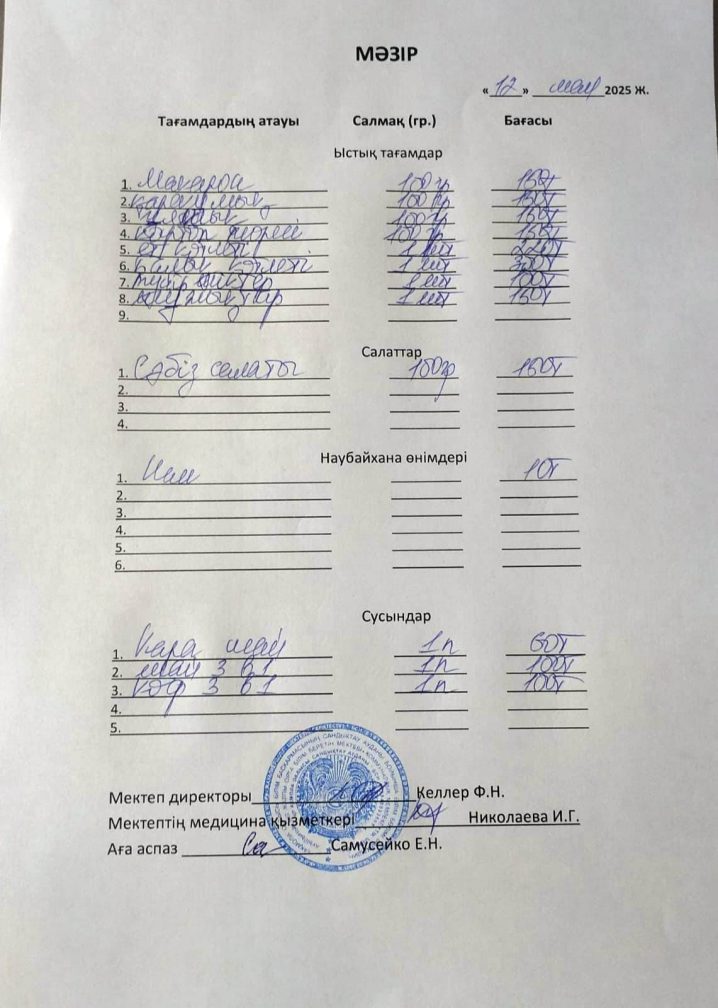 МӘЗІР
« 12 » май 2025 Ж.
Тағамдардың атауы Салмақ (гр.) Бағасы
Ыстық тағамдар
1. Макарон 100 гр 150т
2. қарақұмық 100 гр 150т
3. 100 гр 150т
4. картоп пюреси 100 гр 150т
5. ет котлеті 1 шт 220т
6. балық котлеті 1 шт 300т
7. 1 шт 100т
8. 1 шт 150т
9.
Салаттар
1. Сәбіз салаты 100гр 150т
2.
3.
4.
Наубайхана өнімдері
1. Нан 10т
2.
3.
4.
5.
6.
Сусындар
1. Қара шай 1п 60т
2. шай 3 в 1 1п 100т
3. кофе 3 в 1 1п 100т
4.
5.
Мектеп директоры Келлер Ф.Н.
Мектептің медицина қызметкері Николаева И.Г.
Аға аспаз Самусейко Е.Н.